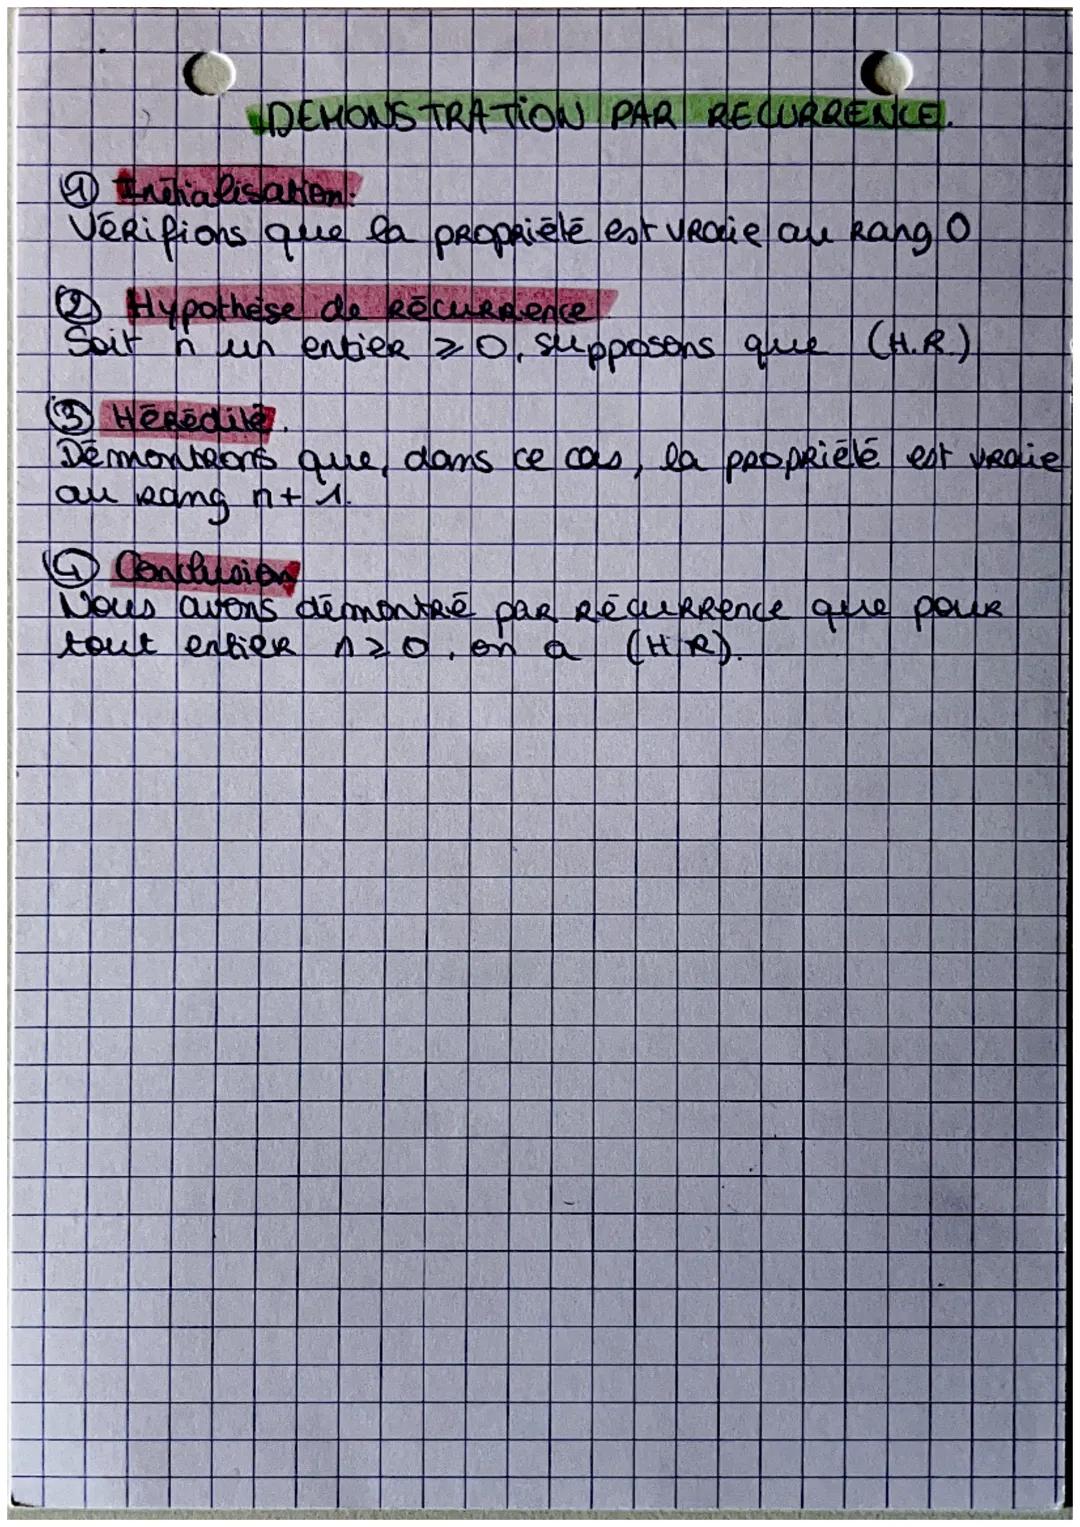 DEMONSTRATION PAR RECURRENCE.
① Initialisation:
Vérifions que la propriété est vraie au rang 0
② Hypothèse de récurrence
Soit n un entier ⩾ 0, supposons que (H.R.)
③ Hérédité.
Démontrons que, dans ce cas, la propriété est vraie
au rang n+1.
④ Conclusion
Nous avons démontré par récurrence que pour
tout entier n⩾0, on a (H.R).